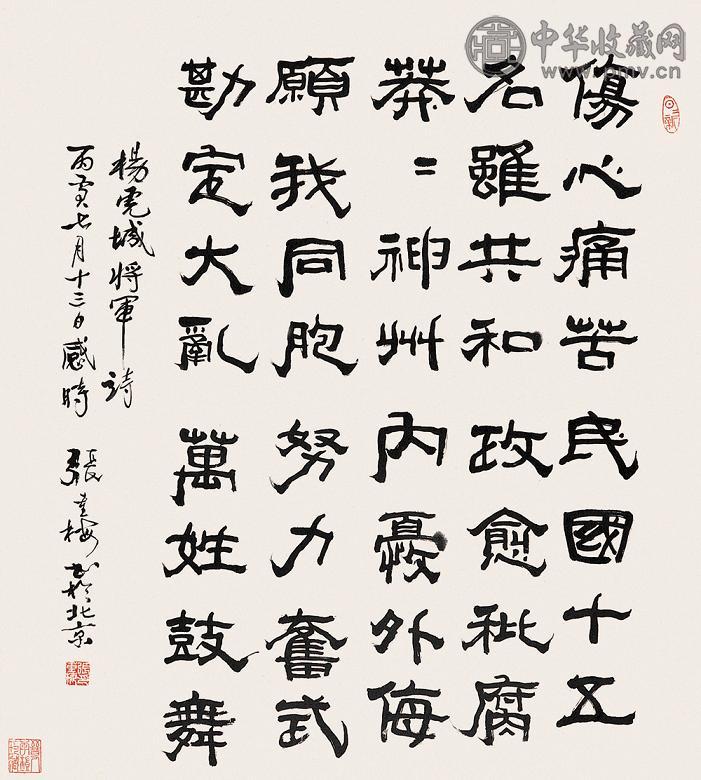 中华收藏网
www.pmv.cn
傷心痛苦民國十五
名雖共和政愈秕腐
莽〻神州内憂外侮
願我同胞努力奮武
勘定大亂萬姓鼓舞
楊虎城將軍詩
丙寅七月十三日感時 張梅书於北京